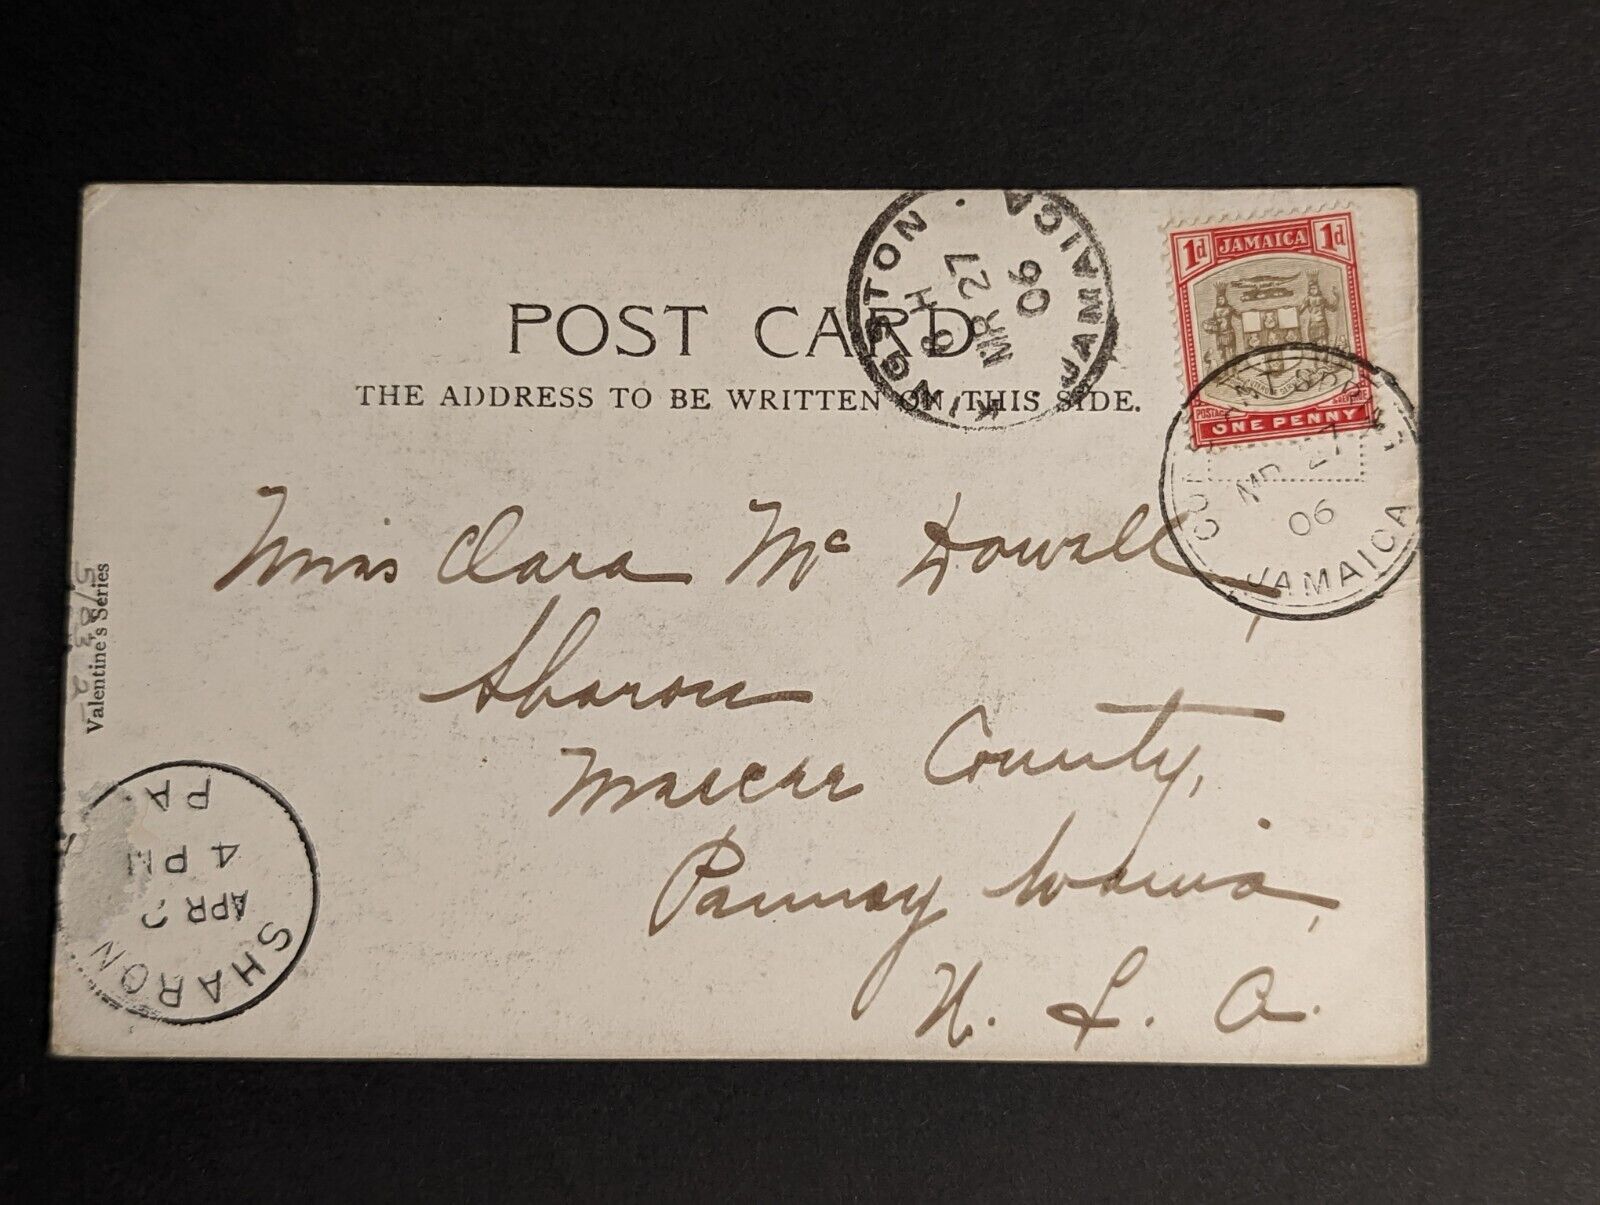 POST CARD
THE ADDRESS TO BE WRITTEN ON THIS SIDE.
KINGSTON · JAMAICA
MR 27
06
1d JAMAICA 1d
POSTAGE & REVENUE
ONE PENNY
MR 27
06
JAMAICA
Miss Clara Mc Dowell,
Sharon
Mercer County,
Pennsylvania,
U. S. A.
Valentine's Series
SHARON
APR
4 PM
PA.